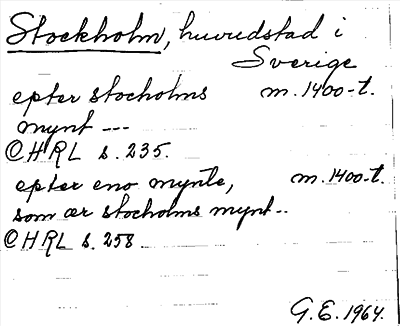 Stockholm, huvudstad i
Sverige
epter stocholms m. 1400-t.
mynt ---
©HRL s. 235.
epter eno mynte, m. 1400-t.
som ær stocholms mynt--
©HRL s. 258
G.E. 1964.